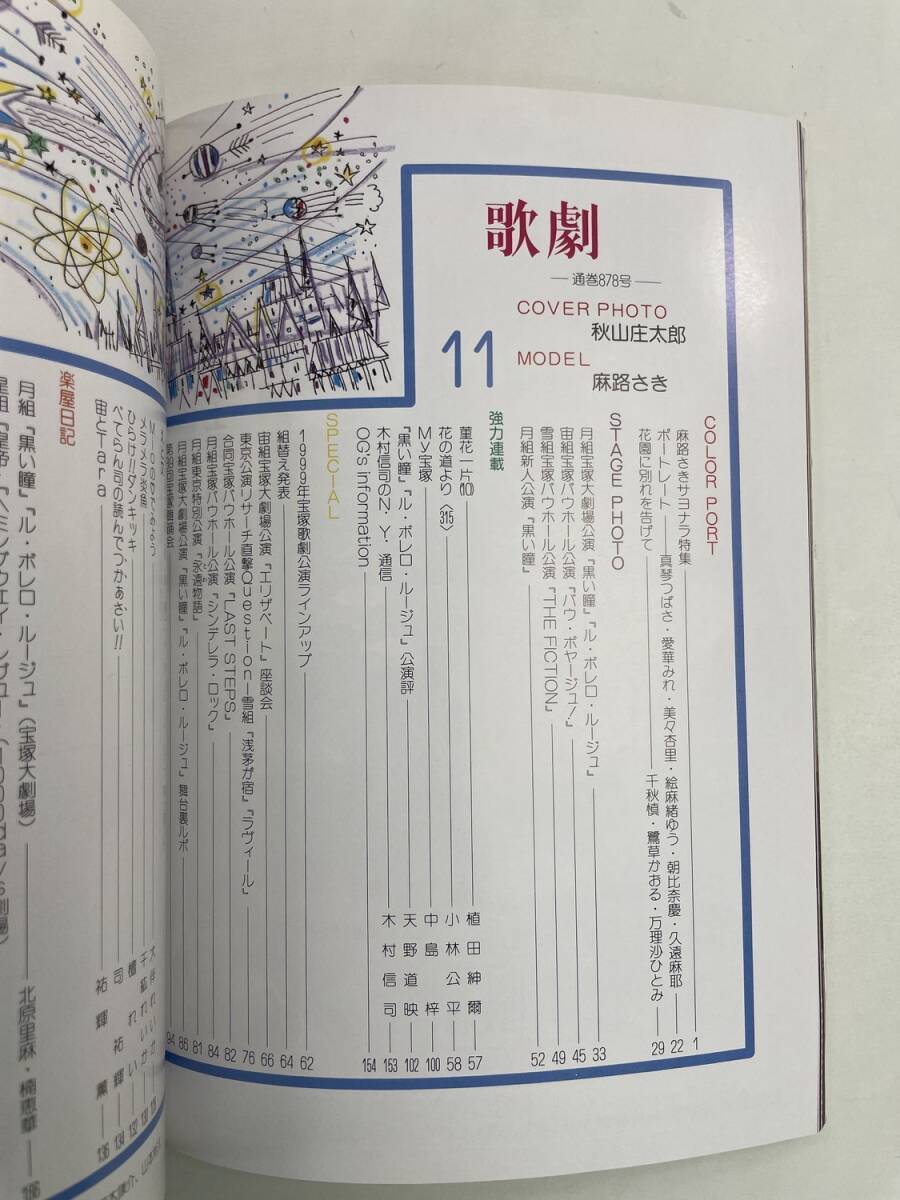 歌劇
―通巻878号―
COVER PHOTO
秋山庄太郎
MODEL
麻路さき
11
COLOR PORT
麻路さきサヨナラ特集 1
ポートレート 真琴つばさ・愛華みれ・美々杏里・絵麻緒ゆう・朝比奈慶・久遠麻耶 22
花園に別れを告げて 千秋慎・鷺草かおる・万理沙ひとみ 29
STAGE PHOTO
月組宝塚大劇場公演『黒い瞳』『ル・ボレロ・ルージュ』 33
宙組宝塚バウホール公演『バウ・ボヤージュ!』 45
雪組宝塚バウホール公演『THE FICTION』 49
月組新人公演『黒い瞳』 52
強力連載
菫花一片(10) 植田紳爾 57
花の道より〈315〉 小林公平 58
My宝塚 中島梓 100
『黒い瞳』『ル・ボレロ・ルージュ』公演評 天野道映 102
木村信司のN.Y.通信 木村信司 153
OG's information 154
SPECIAL
1999年宝塚歌劇公演ラインアップ 62
組替え発表 64
宙組宝塚大劇場公演『エリザベート』座談会 66
東京公演リサーチ直撃Question―雪組『浅茅が宿』『ラヴィール』 76
合同宝塚バウホール公演『LAST STEPS』 82
月組宝塚バウホール公演『シンデレラ・ロック』 84
月組東京特別公演『永遠物語』 81
月組宝塚大劇場公演『黒い瞳』『ル・ボレロ・ルージュ』舞台裏ルポ 86
94
メラメラ炎魚
ひらけ!!ダンキッキ 132
べてらん司の読んでつかぁさい!! 司祐輝 134
宙とTara 祐輝薫 136
楽屋日記
月組『黒い瞳』『ル・ボレロ・ルージュ』(宝塚大劇場) 北原里麻・楠恵華 166